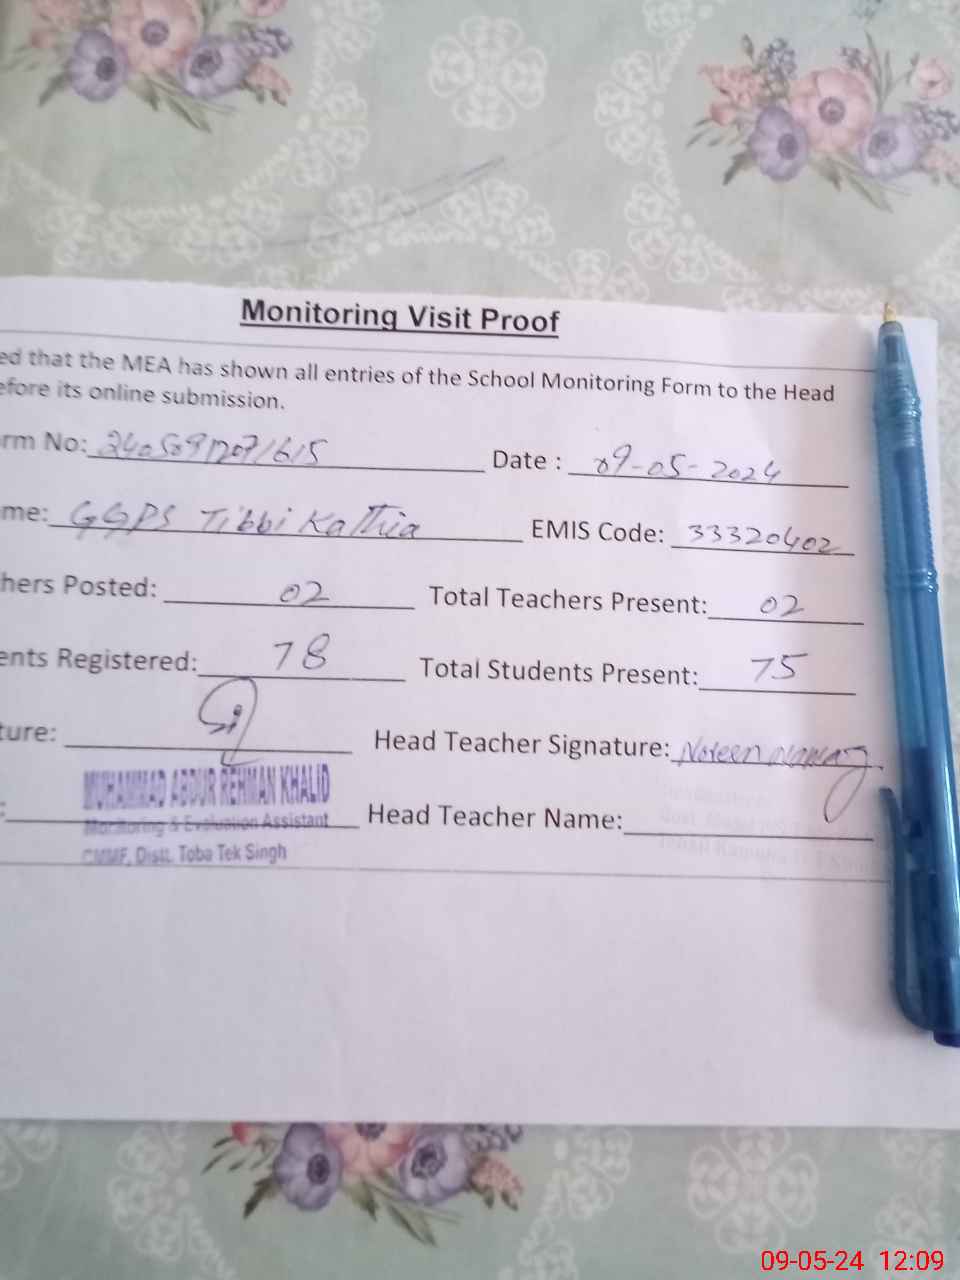 Monitoring Visit Proof
ed that the MEA has shown all entries of the School Monitoring Form to the Head
efore its online submission.
rm No: Date : 09-05-2024
me: GGPS Tibbi Kathia EMIS Code: 33320402
hers Posted: 02 Total Teachers Present: 02
ents Registered: 78 Total Students Present: 75
ture: Head Teacher Signature: Noreen Nawaz
MUHAMMAD ABDUR REHMAN KHALID
: Monitoring & Evaluation Assistant Head Teacher Name:
CMMF, Distt. Toba Tek Singh
09-05-24 12:09